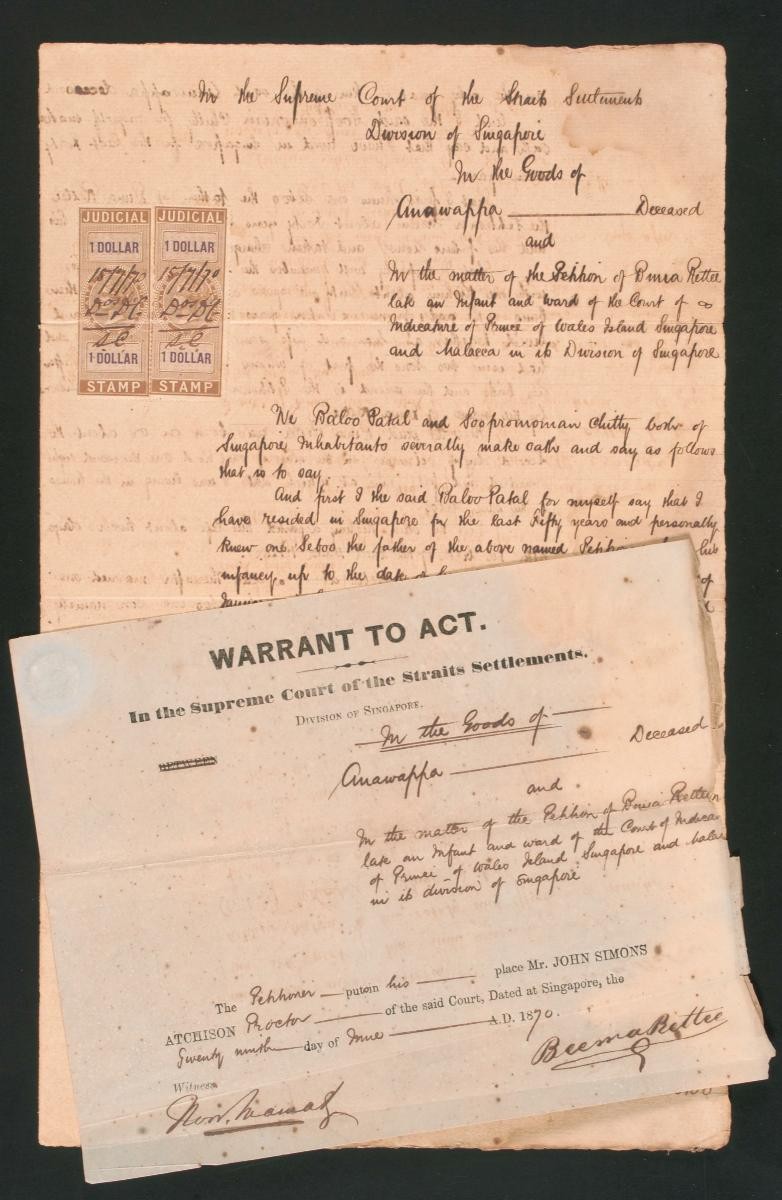 In the Supreme Court of the Straits Settlements
Division of Singapore
In the Goods of
Anawappa Deceased
and
In the matter of the Petition of Bmia Rettee
late an Infant and ward of the Court of
Iudicature of Prince of Wales Island Singapore
and Malacca in its Division of Singapore
JUDICIAL JUDICIAL
1 DOLLAR 1 DOLLAR
15/7/70 15/7/70
1 DOLLAR 1 DOLLAR
STAMP STAMP
We Baloo Patal and Soopromonian Chitty both of
Singapore Inhabitants severally make oath and say as follows
that is to say
And first I the said Baloo Patal for myself say that I
have resided in Singapore for the last Fifty years and personally
knew one Seboo the father of the above named
infancy up to the date
WARRANT TO ACT.
In the Supreme Court of the Straits Settlements.
DIVISION OF SINGAPORE.
BETWEEN
In the Goods of
Anawappa Deceased
and
In the matter of the Petition of Bmia Rettee
late an Infant and ward of the Court of
of Prince of Wales Island Singapore and
in its division of Singapore
The Petitioner puts in his place Mr. JOHN SIMONS
ATCHISON Proctor of the said Court, Dated at Singapore, the
Twenty ninth day of June A.D. 1870.
Beema Rettee
Witness